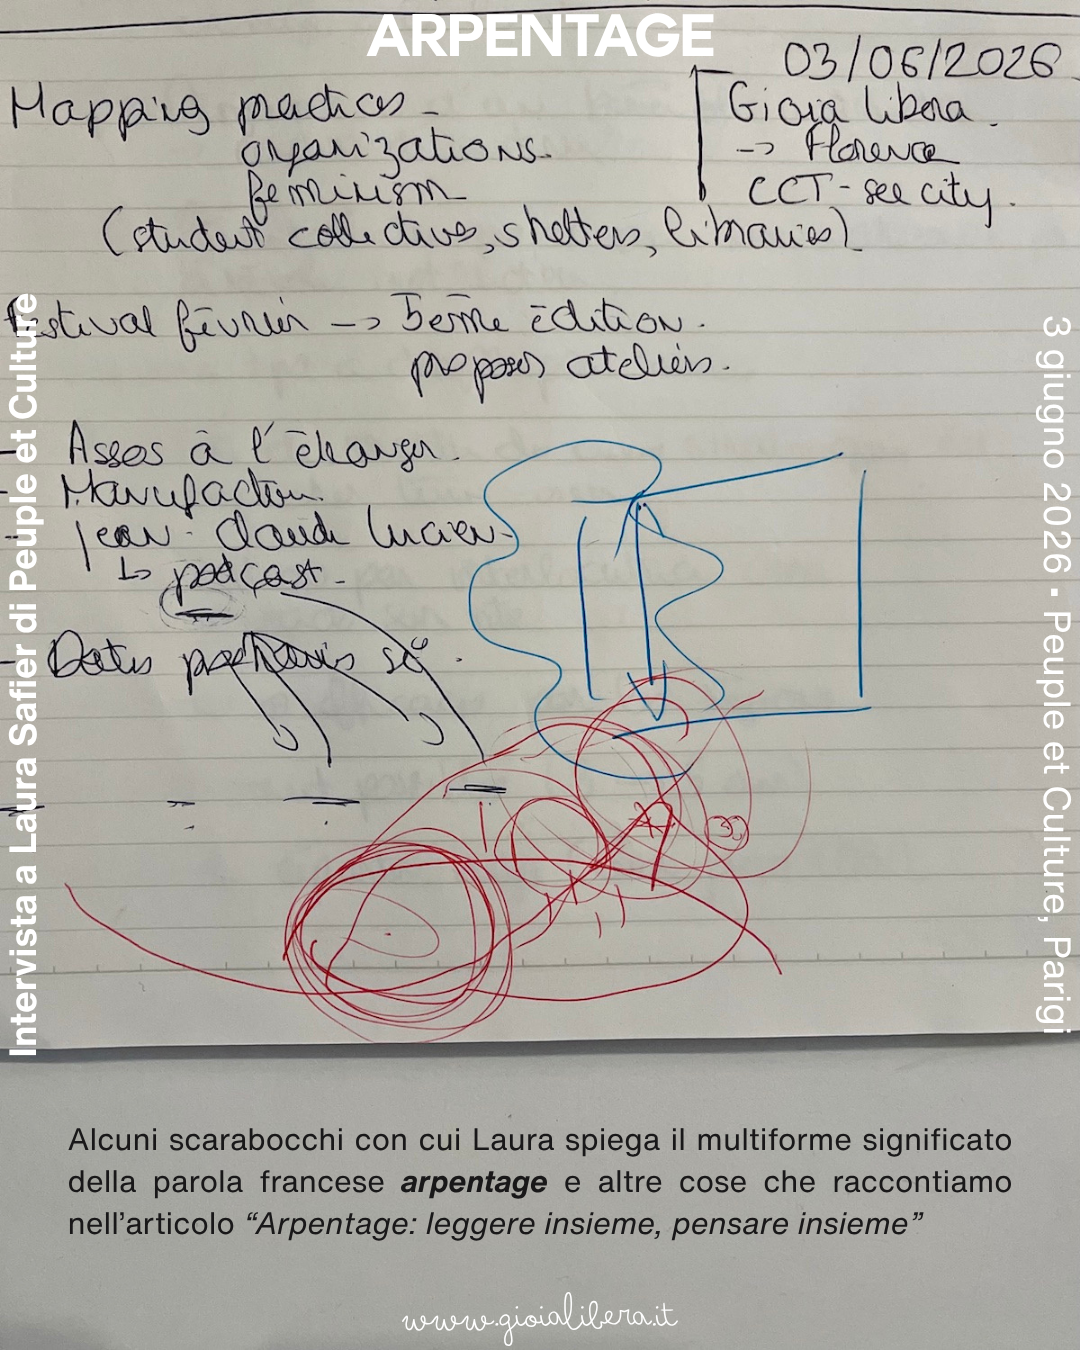 ARPENTAGE
03/06/2026
Mapping practices
organizations.
feminism
(student collectives, shelters, libraries)
Gioia libera.
-> Florence
CCT - see city.
festival février -> 5ème édition.
proposer ateliers.
- Assos à l'étranger.
- Manufacture
- Jean-Claude Lucien
↳ podcast
- Dates
Intervista a Laura Safier di Peuple et Culture
3 giugno 2026 · Peuple et Culture, Parigi
Alcuni scarabocchi con cui Laura spiega il multiforme significato
della parola francese arpentage e altre cose che raccontiamo
nell'articolo “Arpentage: leggere insieme, pensare insieme”
www.gioialibera.it